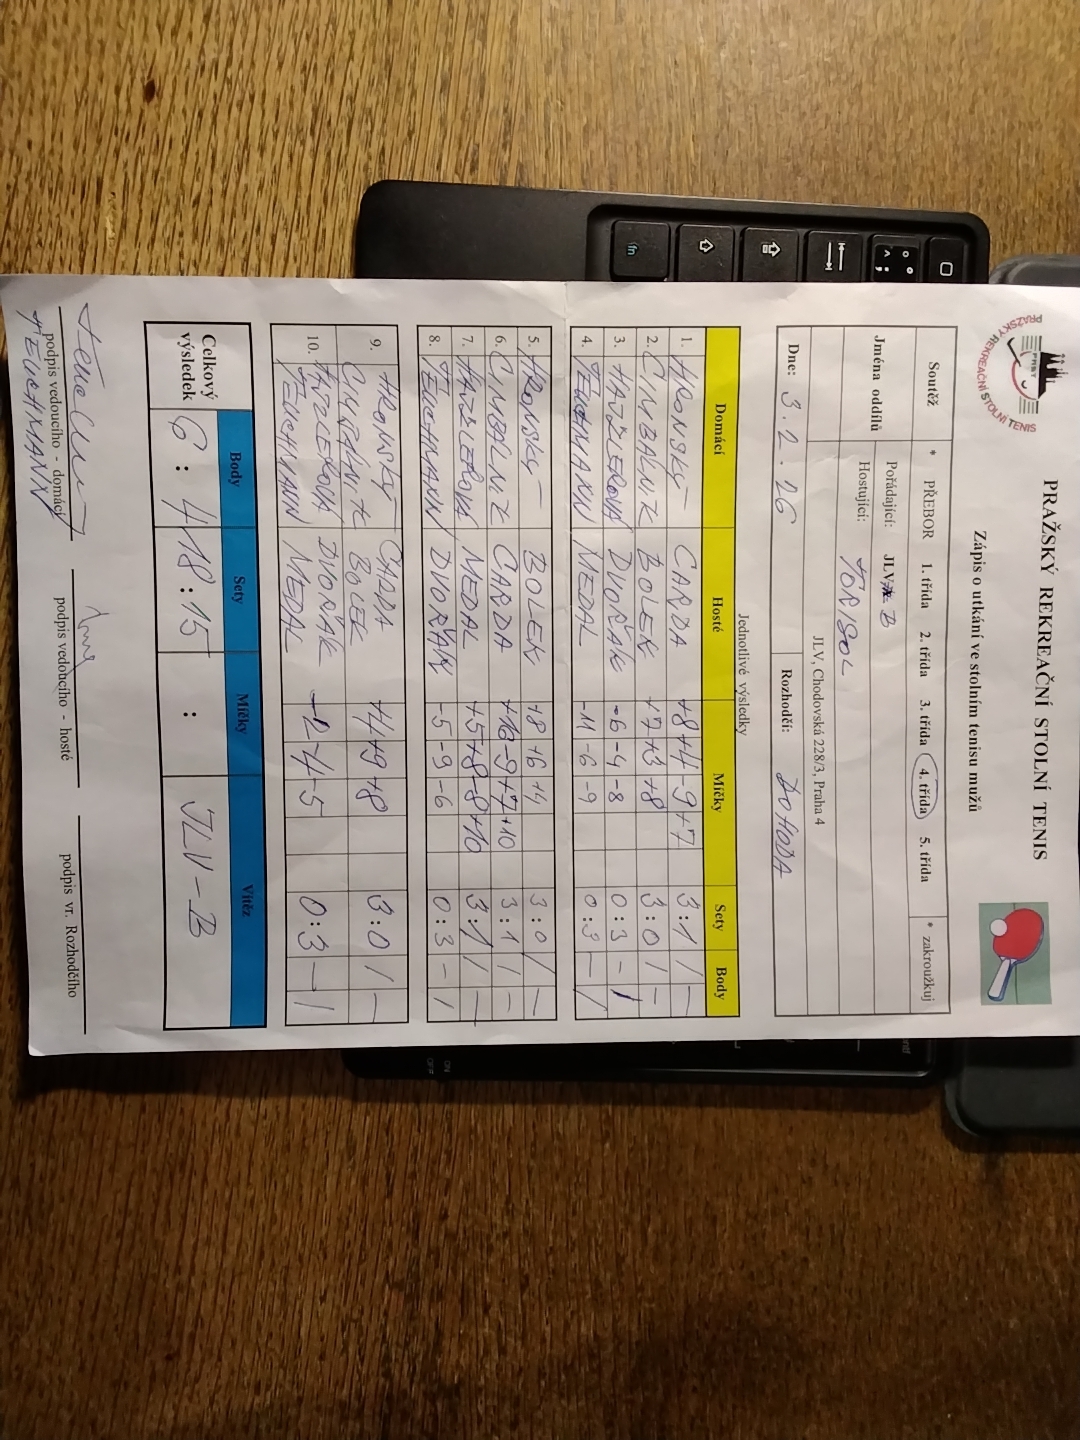 PRAŽSKÝ REKREAČNÍ STOLNÍ TENIS
Zápis o utkání ve stolním tenisu mužů
PRAŽSKÝ REKREAČNÍ STOLNÍ TENIS
PRST
Soutěž * PŘEBOR 1. třída 2. třída 3. třída 4. třída 5. třída * zakroužkuj
Jména oddílů Pořádající: JLV B
Hostující: TORISOL
JLV, Chodovská 228/3, Praha 4
Dne: 3.2.26 Rozhodčí: DOHODA
Jednotlivé výsledky
Domácí Hosté Míčky Sety Body
1. HRONSKÝ CARDA +8 +4 -9 +7 3:1 1 -
2. CIMBALNIK BOLEK +7 +3 +8 3:0 1 -
3. HAZLEROVA DVOŘAK -6 -4 -8 0:3 - 1
4. TEUCHMANN MEDAL -11 -6 -9 0:3 - 1
5. HRONSKÝ BOLEK +8 +6 +4 3:0 1 -
6. CIMBALNIK CARDA +10 -9 +7 +10 3:1 1 -
7. HAZLEROVA MEDAL +5 +8 -8 +10 3:1 1 -
8. TEUCHMANN DVOŘAK -5 -9 -6 0:3 - 1
9. HRONSKÝ CARDA
CIMBALNIK BOLEK +4 +9 +8 3:0 1 -
10. HAZLEROVA DVOŘAK
TEUCHMANN MEDAL -2 -4 -5 0:3 - 1
Celkový výsledek Body Sety Míčky Vítěz
6 : 4 18:15 : JLV-B
podpis vedoucího - domácí podpis vedoucího - hosté podpis vr. Rozhodčího
TEUCHMANN
fn
ON
OFF